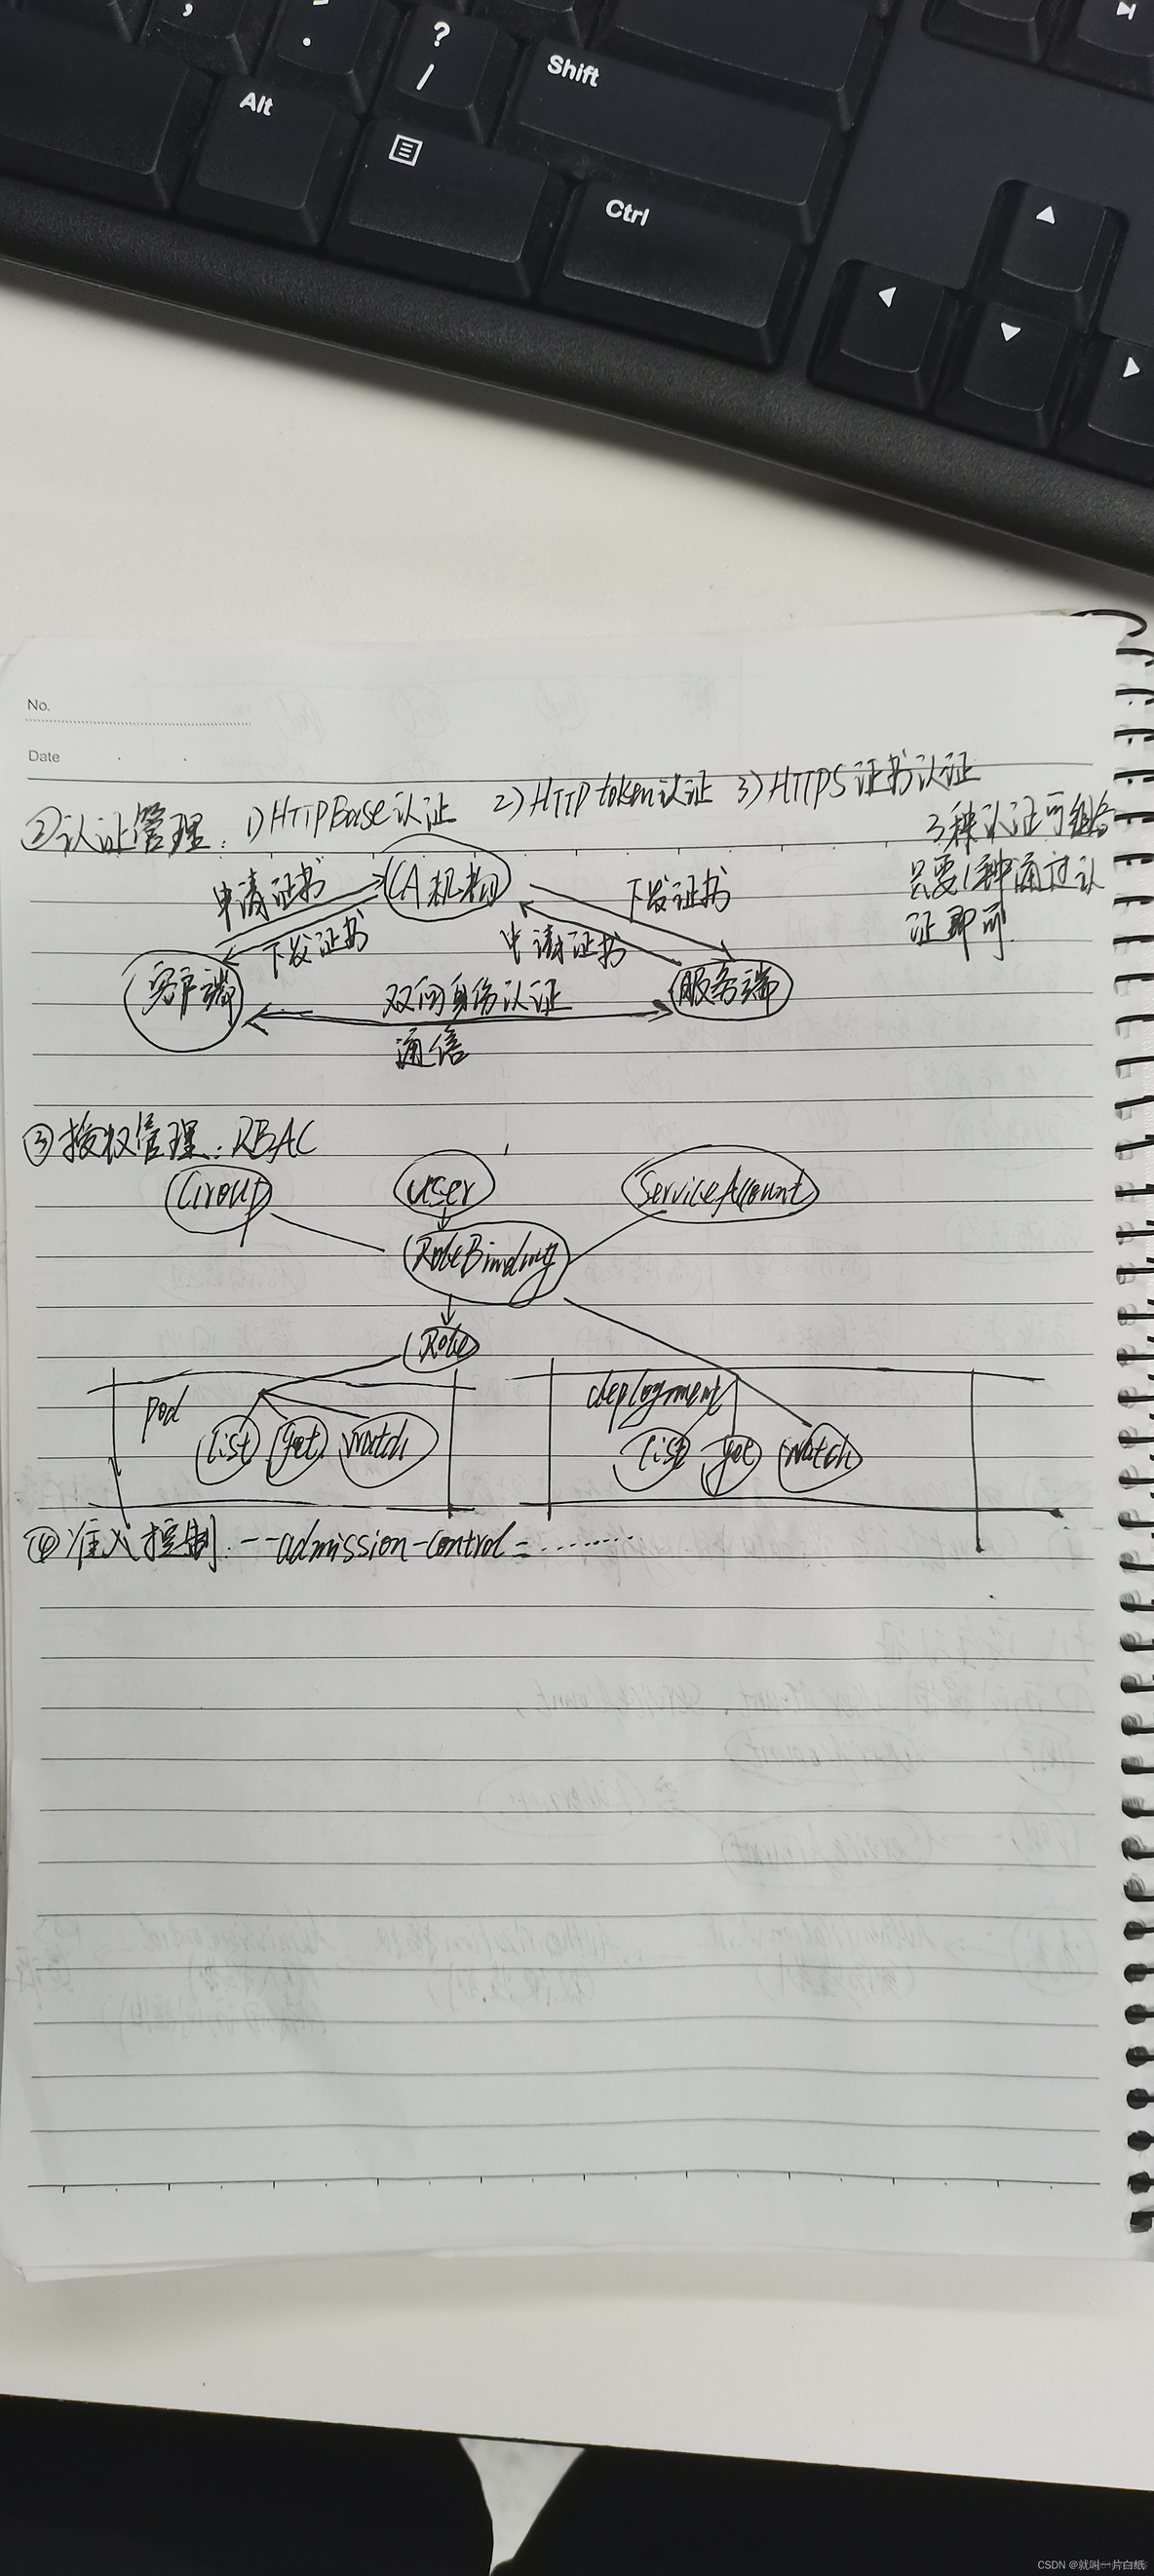 Alt
?
/
Shift
Ctrl
No.
Date
②认证管理: 1)HTTPBase认证 2)HTTP token认证 3)HTTPS证书认证
3种认证可组合
只要1种通过认
证即可.
申请证书
CA机构
下发证书
下发证书
申请证书
客户端
双向身份认证
服务端
通信
③授权管理: RBAC
Group
user
ServiceAccount
RoleBinding
Role
pod
list get watch
deployment
list get watch
④准入控制: --admission-control=........
CSDN @就叫一片白纸